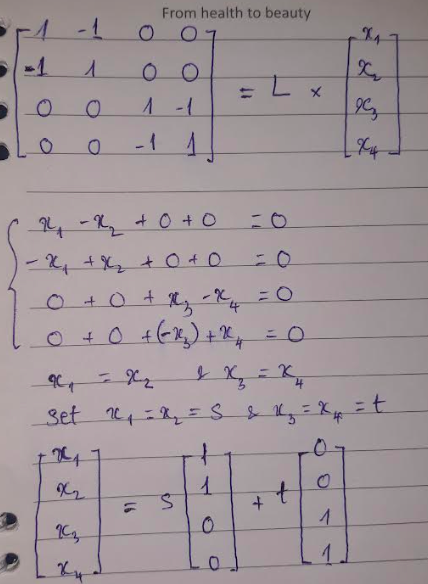 From health to beauty
[1 -1 0 0
-1 1 0 0
0 0 1 -1
0 0 -1 1] = L × [x₁
x₂
x₃
x₄]
{ x₁ - x₂ + 0 + 0 = 0
-x₁ + x₂ + 0 + 0 = 0
0 + 0 + x₃ - x₄ = 0
0 + 0 + (-x₃) + x₄ = 0
x₁ = x₂ & x₃ = x₄
Set x₁ = x₂ = S & x₃ = x₄ = t
[x₁
x₂
x₃
x₄] = S [1
1
0
0] + t [0
0
1
1]